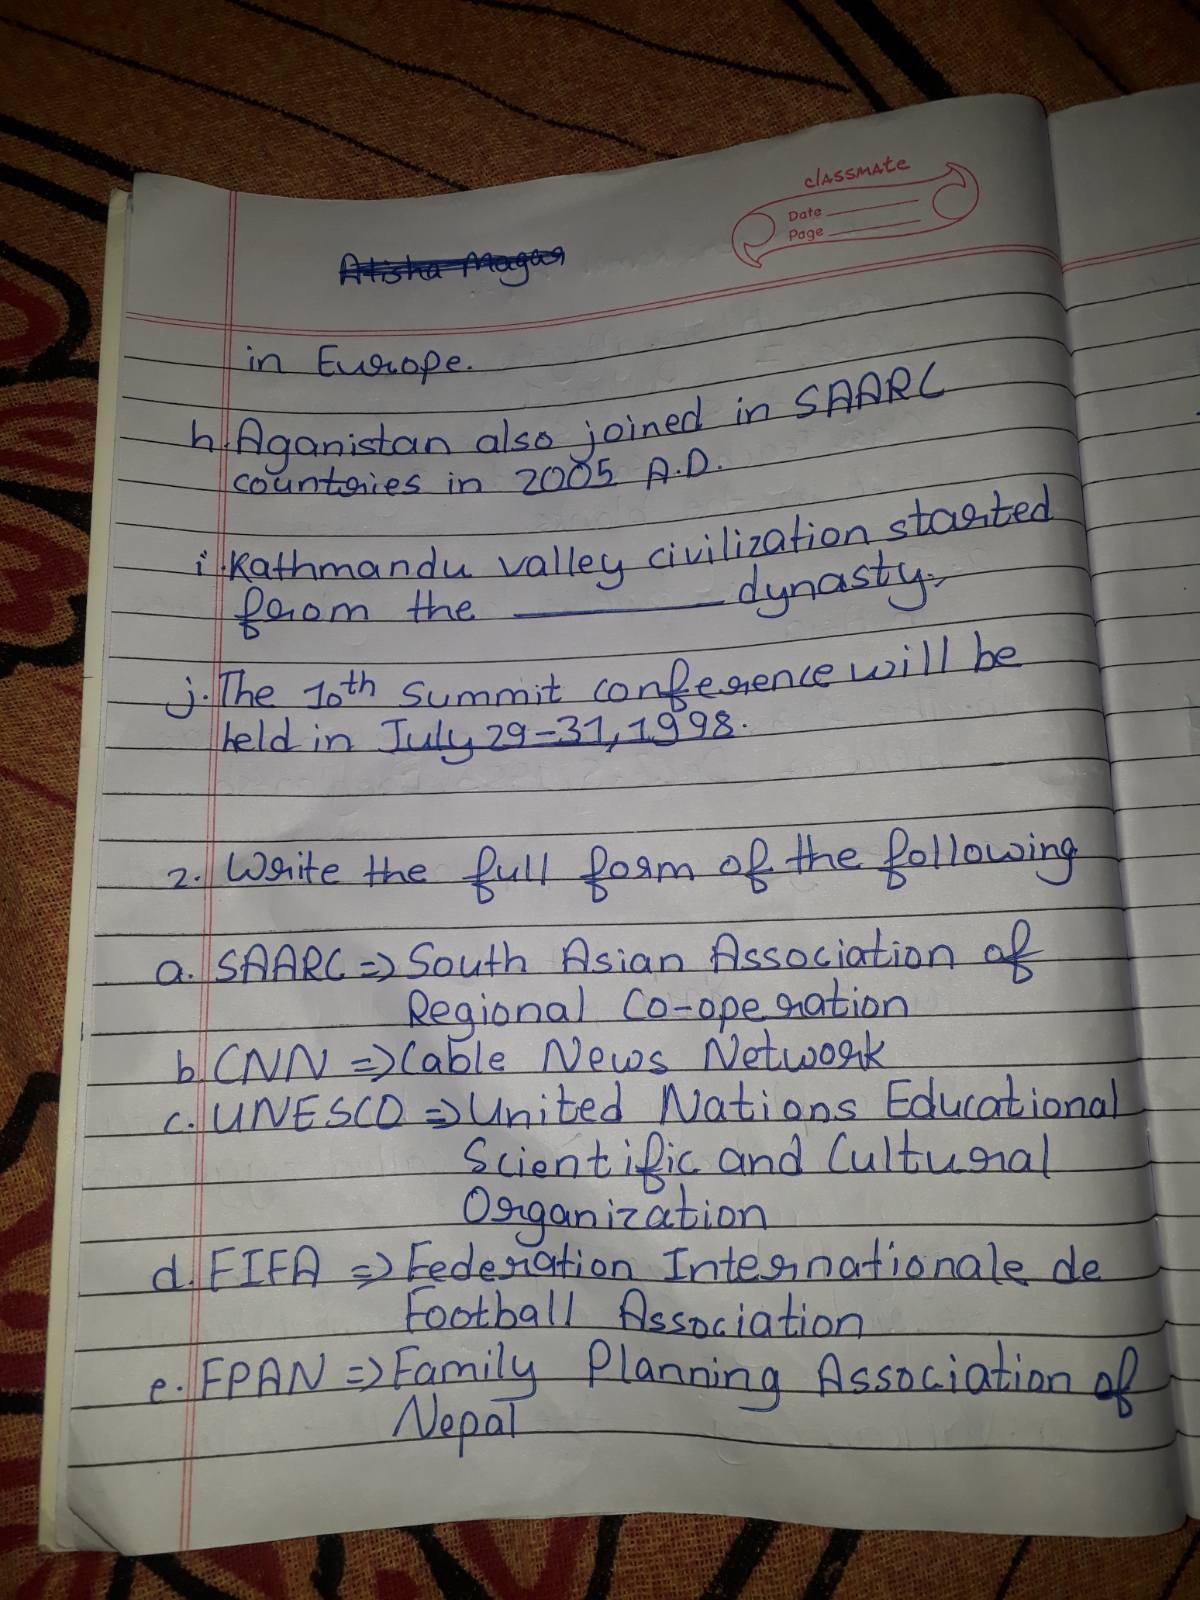 classmate
Date
Page
Atisha Magar
in Europe.
h. Aganistan also joined in SAARC
countries in 2005 A.D.
i. Kathmandu valley civilization started
from the ________ dynasty.
j. The 10th summit conference will be
held in July 29-31, 1998.
2. Write the full form of the following
a. SAARC => South Asian Association of
Regional Co-operation
b. CNN => Cable News Network
c. UNESCO => United Nations Educational
Scientific and Cultural
Organization
d. FIFA => Federation Internationale de
Football Association
e. FPAN => Family Planning Association of
Nepal